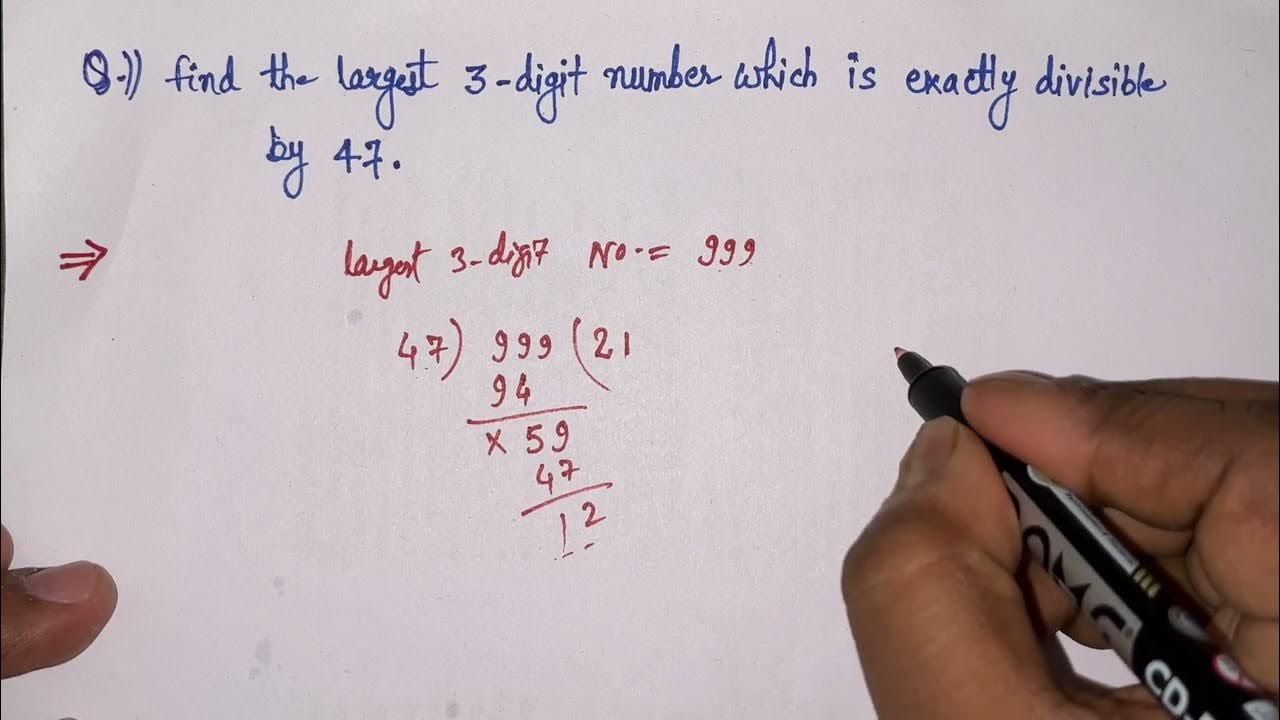 Q.)) find the largest 3-digit number which is exactly divisible
by 47.
⇒ largest 3-digit No. = 999
47) 999 (21
94
× 59
47
12
CD-